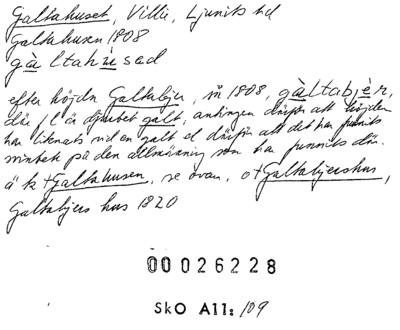 Galtahuset, Villie, Ljunits hd
Galtahusen 1808
gàltahùsad
efter höjden Galtabjer, 1808, gàltabjèr,
där f l å djurhet galt, antingen därför att höjden
har liknats vid en galt el därför att det har funnits
på den allmänning som har funnits där.
ä k + Galtahusen, se ovan, o + Galtabjershus,
Galtabjers hus 1820
00026228
SkO A11: 109